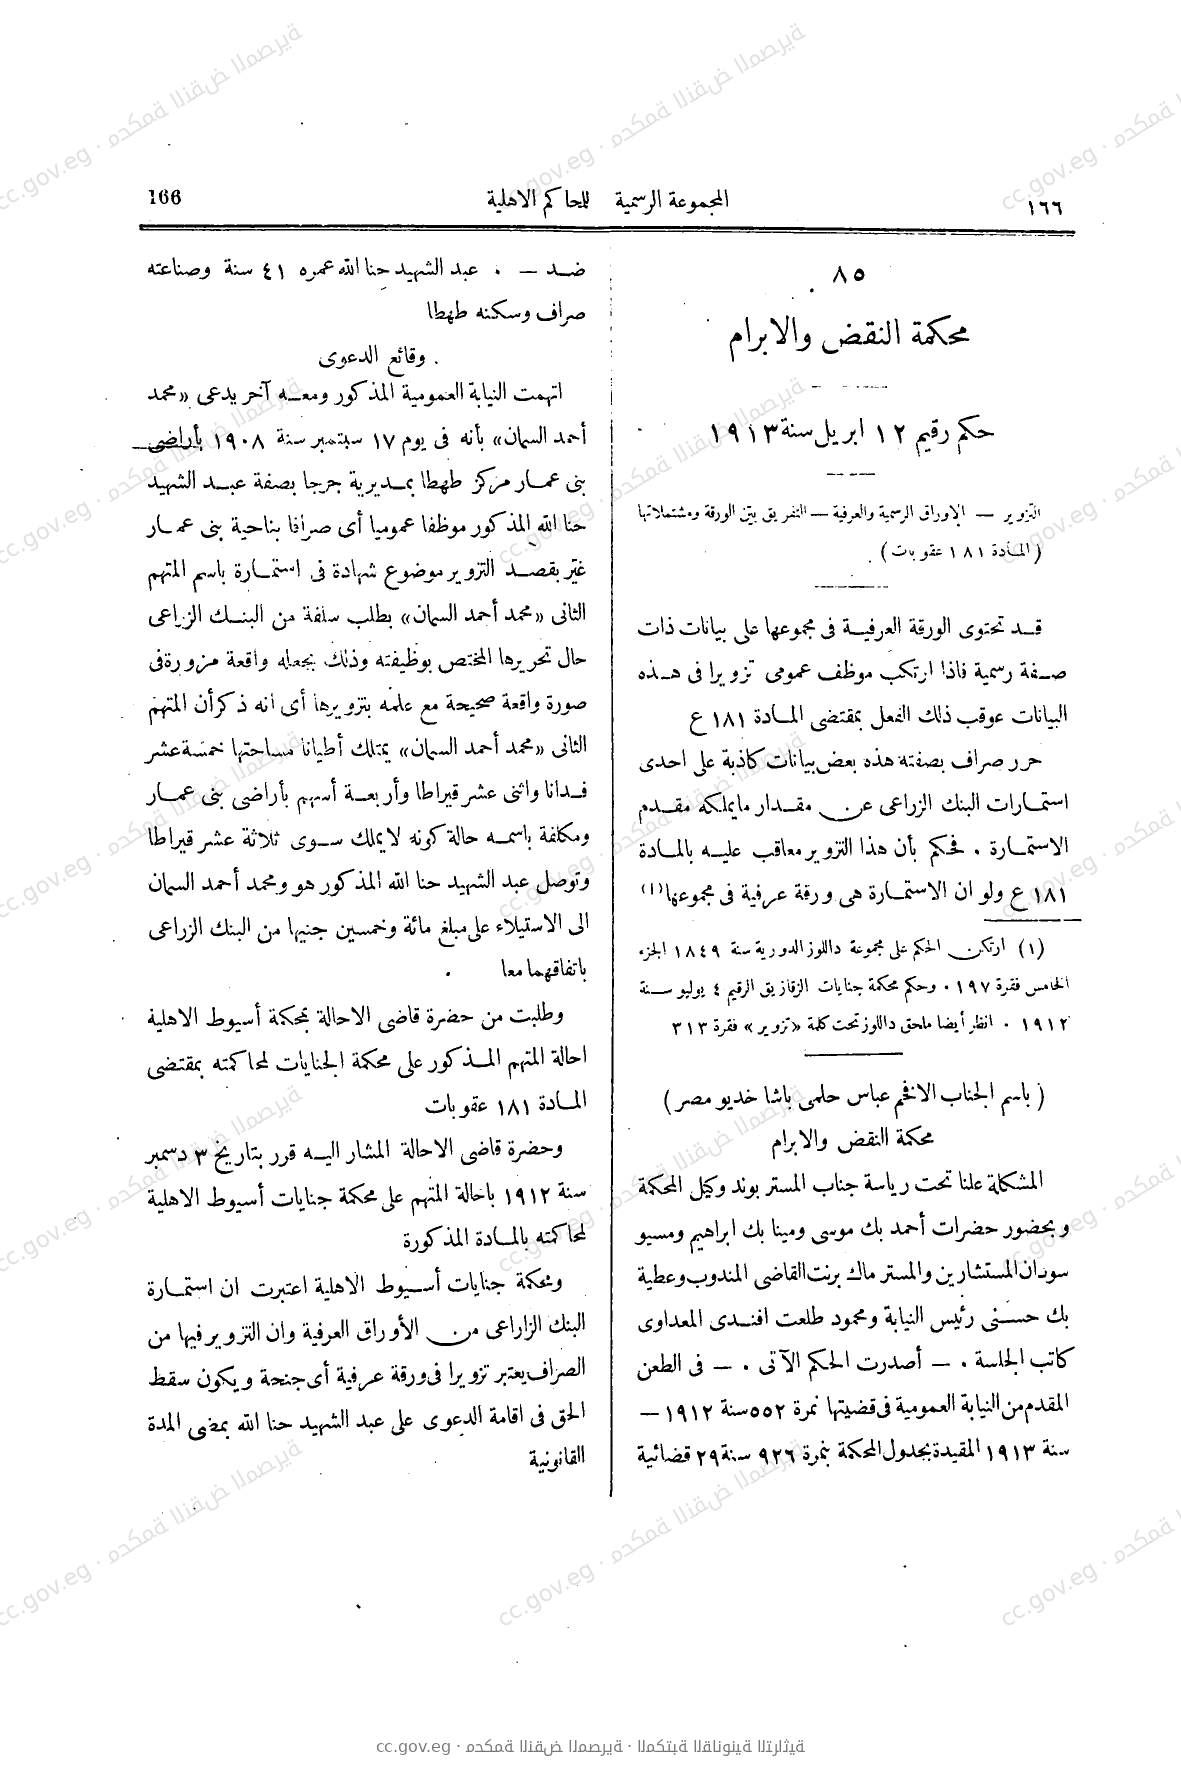 ١٦٦
المجموعة الرسمية للمحاكم الاهلية
166
٨٥
محكمة النقض والابرام
حكم رقيم ١٢ ابريل سنة ١٩١٣
التزوير — الاوراق الرسمية والعرفية — التفريق بين الورقة ومشتملاتها
(المادة ١٨١ عقوبات) .
قد تحتوى الورقة العرفية فى مجموعها على بيانات ذات
صفة رسمية فاذا ارتكب موظف عمومى تزويرا فى هذه
البيانات عوقب ذلك الفعل بمقتضى المادة ١٨١ ع
حرر صراف بصفته هذه بعض بيانات كاذبة على احدى
استمارات البنك الزراعى عن مقدار مايملكه مقدم
الاستمارة . فحكم بأن هذا التزوير معاقب عليه بالمادة
١٨١ ع ولو ان الاستمارة هى ورقة عرفية فى مجموعها(١)
(١) ارتكن الحكم على مجموعة داللوز الدورية سنة ١٨٤٩ الجزء
الخامس فقرة ١٩٧ . وحكم محكمة جنايات الزقازيق الرقيم ٤ يوليو سنة
١٩١٢ . انظر أيضا ملحق داللوز تحت كلمة «تزوير» فقرة ٣١٣
(باسم الجناب الافخم عباس حلمى باشا خديو مصر)
محكمة النقض والابرام
المشكلة علنا تحت رياسة جناب المستر بوند وكيل المحكمة
وبحضور حضرات أحمد بك موسى ومينا بك ابراهيم ومسيو
سودان المستشارين والمستر ماك برنت القاضى المندوب وعطية
بك حسنى رئيس النيابة ومحمود طلعت افندى المعداوى
كاتب الجلسة . — أصدرت الحكم الآتى . — فى الطعن
المقدم من النيابة العمومية فى قضيتها نمرة ٥٥٢ سنة ١٩١٢ —
سنة ١٩١٣ المقيدة بجدول المحكمة بنمرة ٩٢٦ سنة ٢٩ قضائية
ضد — . عبد الشهيد حنا الله عمره ٤١ سنة وصناعته
صراف وسكنه طهطا
وقائع الدعوى
اتهمت النيابة العمومية المذكور ومعه آخر يدعى «محمد
أحمد السمان» بأنه فى يوم ١٧ سبتمبر سنة ١٩٠٨ بأراضى
بنى عمار مركز طهطا بمديرية جرجا بصفة عبد الشهيد
حنا الله المذكور موظفا عموميا أى صرافا بناحية بنى عمار
غير بقصد التزوير موضوع شهادة فى استمارة باسم المتهم
الثانى «محمد أحمد السمان» بطلب سلفة من البنك الزراعى
حال تحريرها المختص بوظيفته وذلك بجعله واقعة مزورة فى
صورة واقعة صحيحة مع علمه بتزويرها أى انه ذكر أن المتهم
الثانى «محمد أحمد السمان» يمتلك أطيانا مساحتها خمسة عشر
فدانا واثنى عشر قيراطا وأربعة أسهم بأراضى بنى عمار
ومكلفة باسمه حالة كونه لا يملك سوى ثلاثة عشر قيراطا
وتوصل عبد الشهيد حنا الله المذكور هو ومحمد أحمد السمان
الى الاستيلاء على مبلغ مائة وخمسين جنيها من البنك الزراعى
باتفاقهما معا .
وطلبت من حضرة قاضى الاحالة بمحكمة أسيوط الاهلية
احالة المتهم المذكور على محكمة الجنايات لمحاكمته بمقتضى
المادة ١٨١ عقوبات
وحضرة قاضى الاحالة المشار اليه قرر بتاريخ ٣ دسمبر
سنة ١٩١٢ باحالة المتهم على محكمة جنايات أسيوط الاهلية
لمحاكمته بالمادة المذكورة
ومحكمة جنايات أسيوط الاهلية اعتبرت ان استمارة
البنك الزاراعى من الأوراق العرفية وان التزوير فيها من
الصراف يعتبر تزويرا فى ورقة عرفية أى جنحة ويكون سقط
الحق فى اقامة الدعوى على عبد الشهيد حنا الله بمضى المدة
القانونية
cc.gov.eg · محكمة النقض المصرية · المكتبة القانونية التراثية